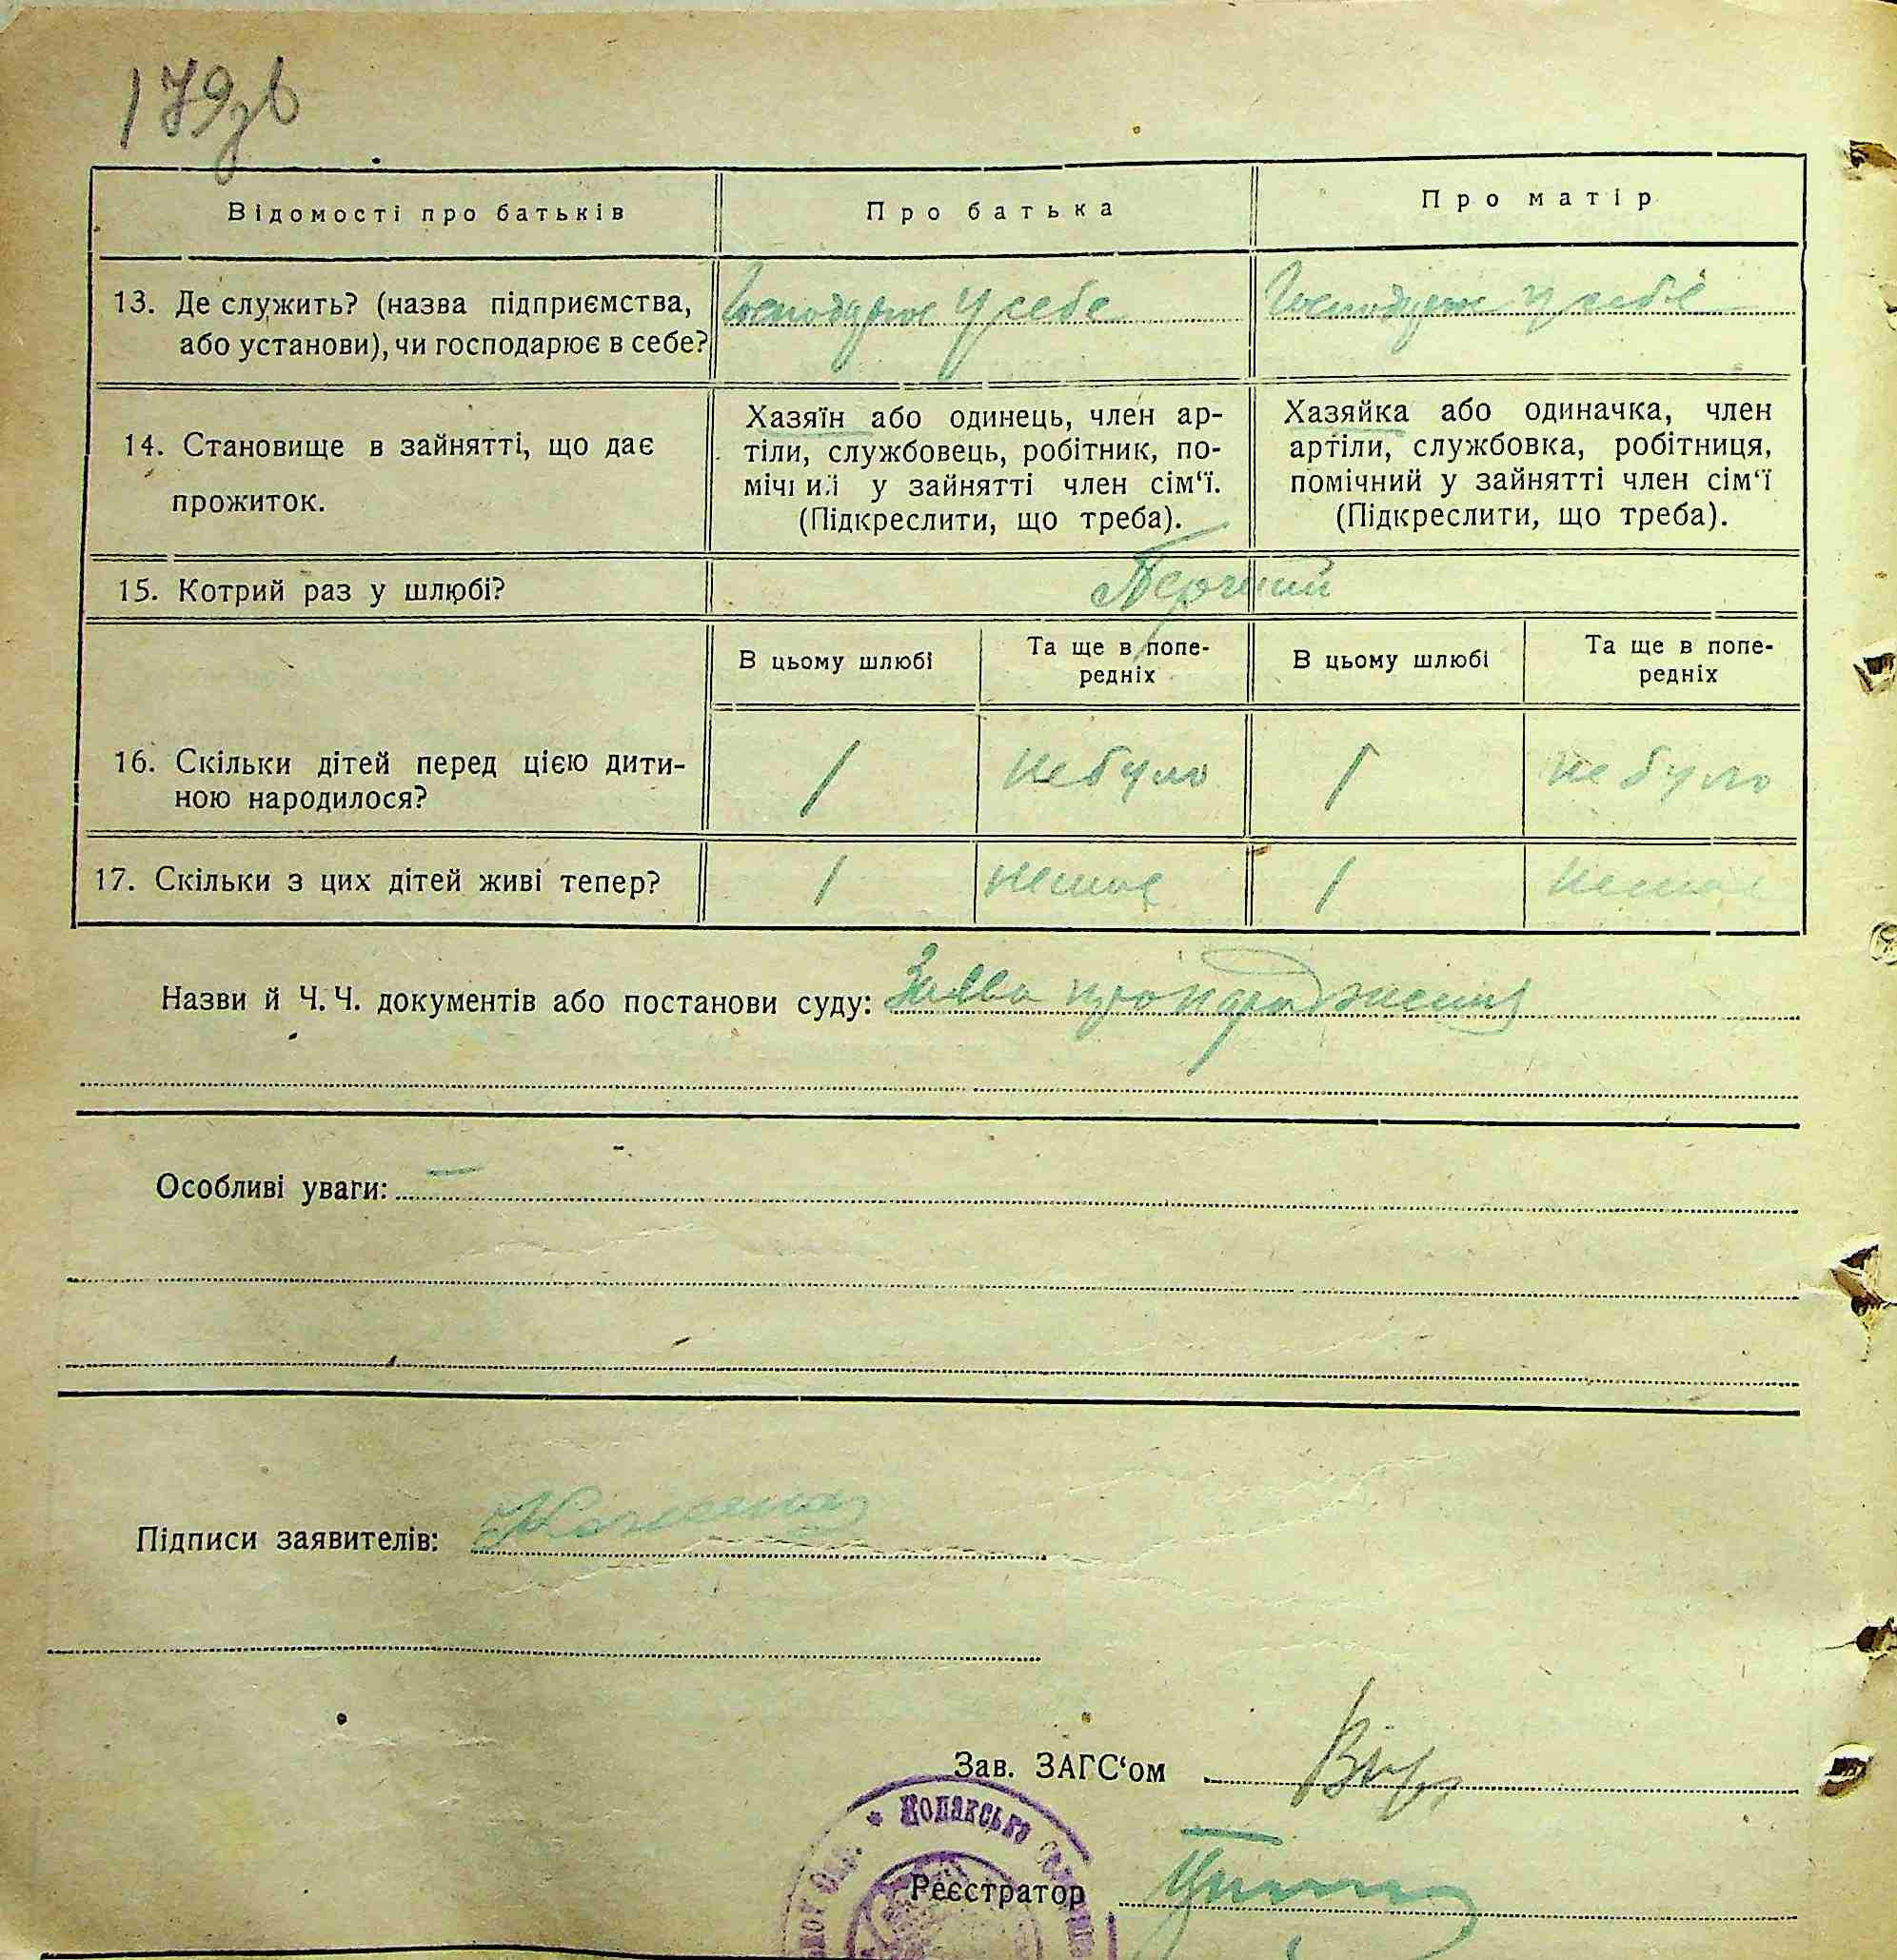 179зв
Відомості про батьків
Про батька
Про матір
13. Де служить? (назва підприємства,
або установи), чи господарює в себе?
Господарює у себе
Господарює у себе
14. Становище в зайнятті, що дає
прожиток.
Хазяїн або одинець, член ар-
тіли, службовець, робітник, по-
мічний у зайнятті член сім‘ї.
(Підкреслити, що треба).
Хазяйка або одиначка, член
артіли, службовка, робітниця,
помічний у зайнятті член сім‘ї
(Підкреслити, що треба).
15. Котрий раз у шлюбі?
Перший
В цьому шлюбі
Та ще в попе-
редніх
В цьому шлюбі
Та ще в попе-
редніх
16. Скільки дітей перед цією дити-
ною народилося?
1
не було
1
не було
17. Скільки з цих дітей живі тепер?
1
немає
1
немає
Назви й Ч. Ч. документів або постанови суду: Заява про народження
Особливі уваги: —
Підписи заявителів:
Зав. ЗАГС‘ом
Реєстратор